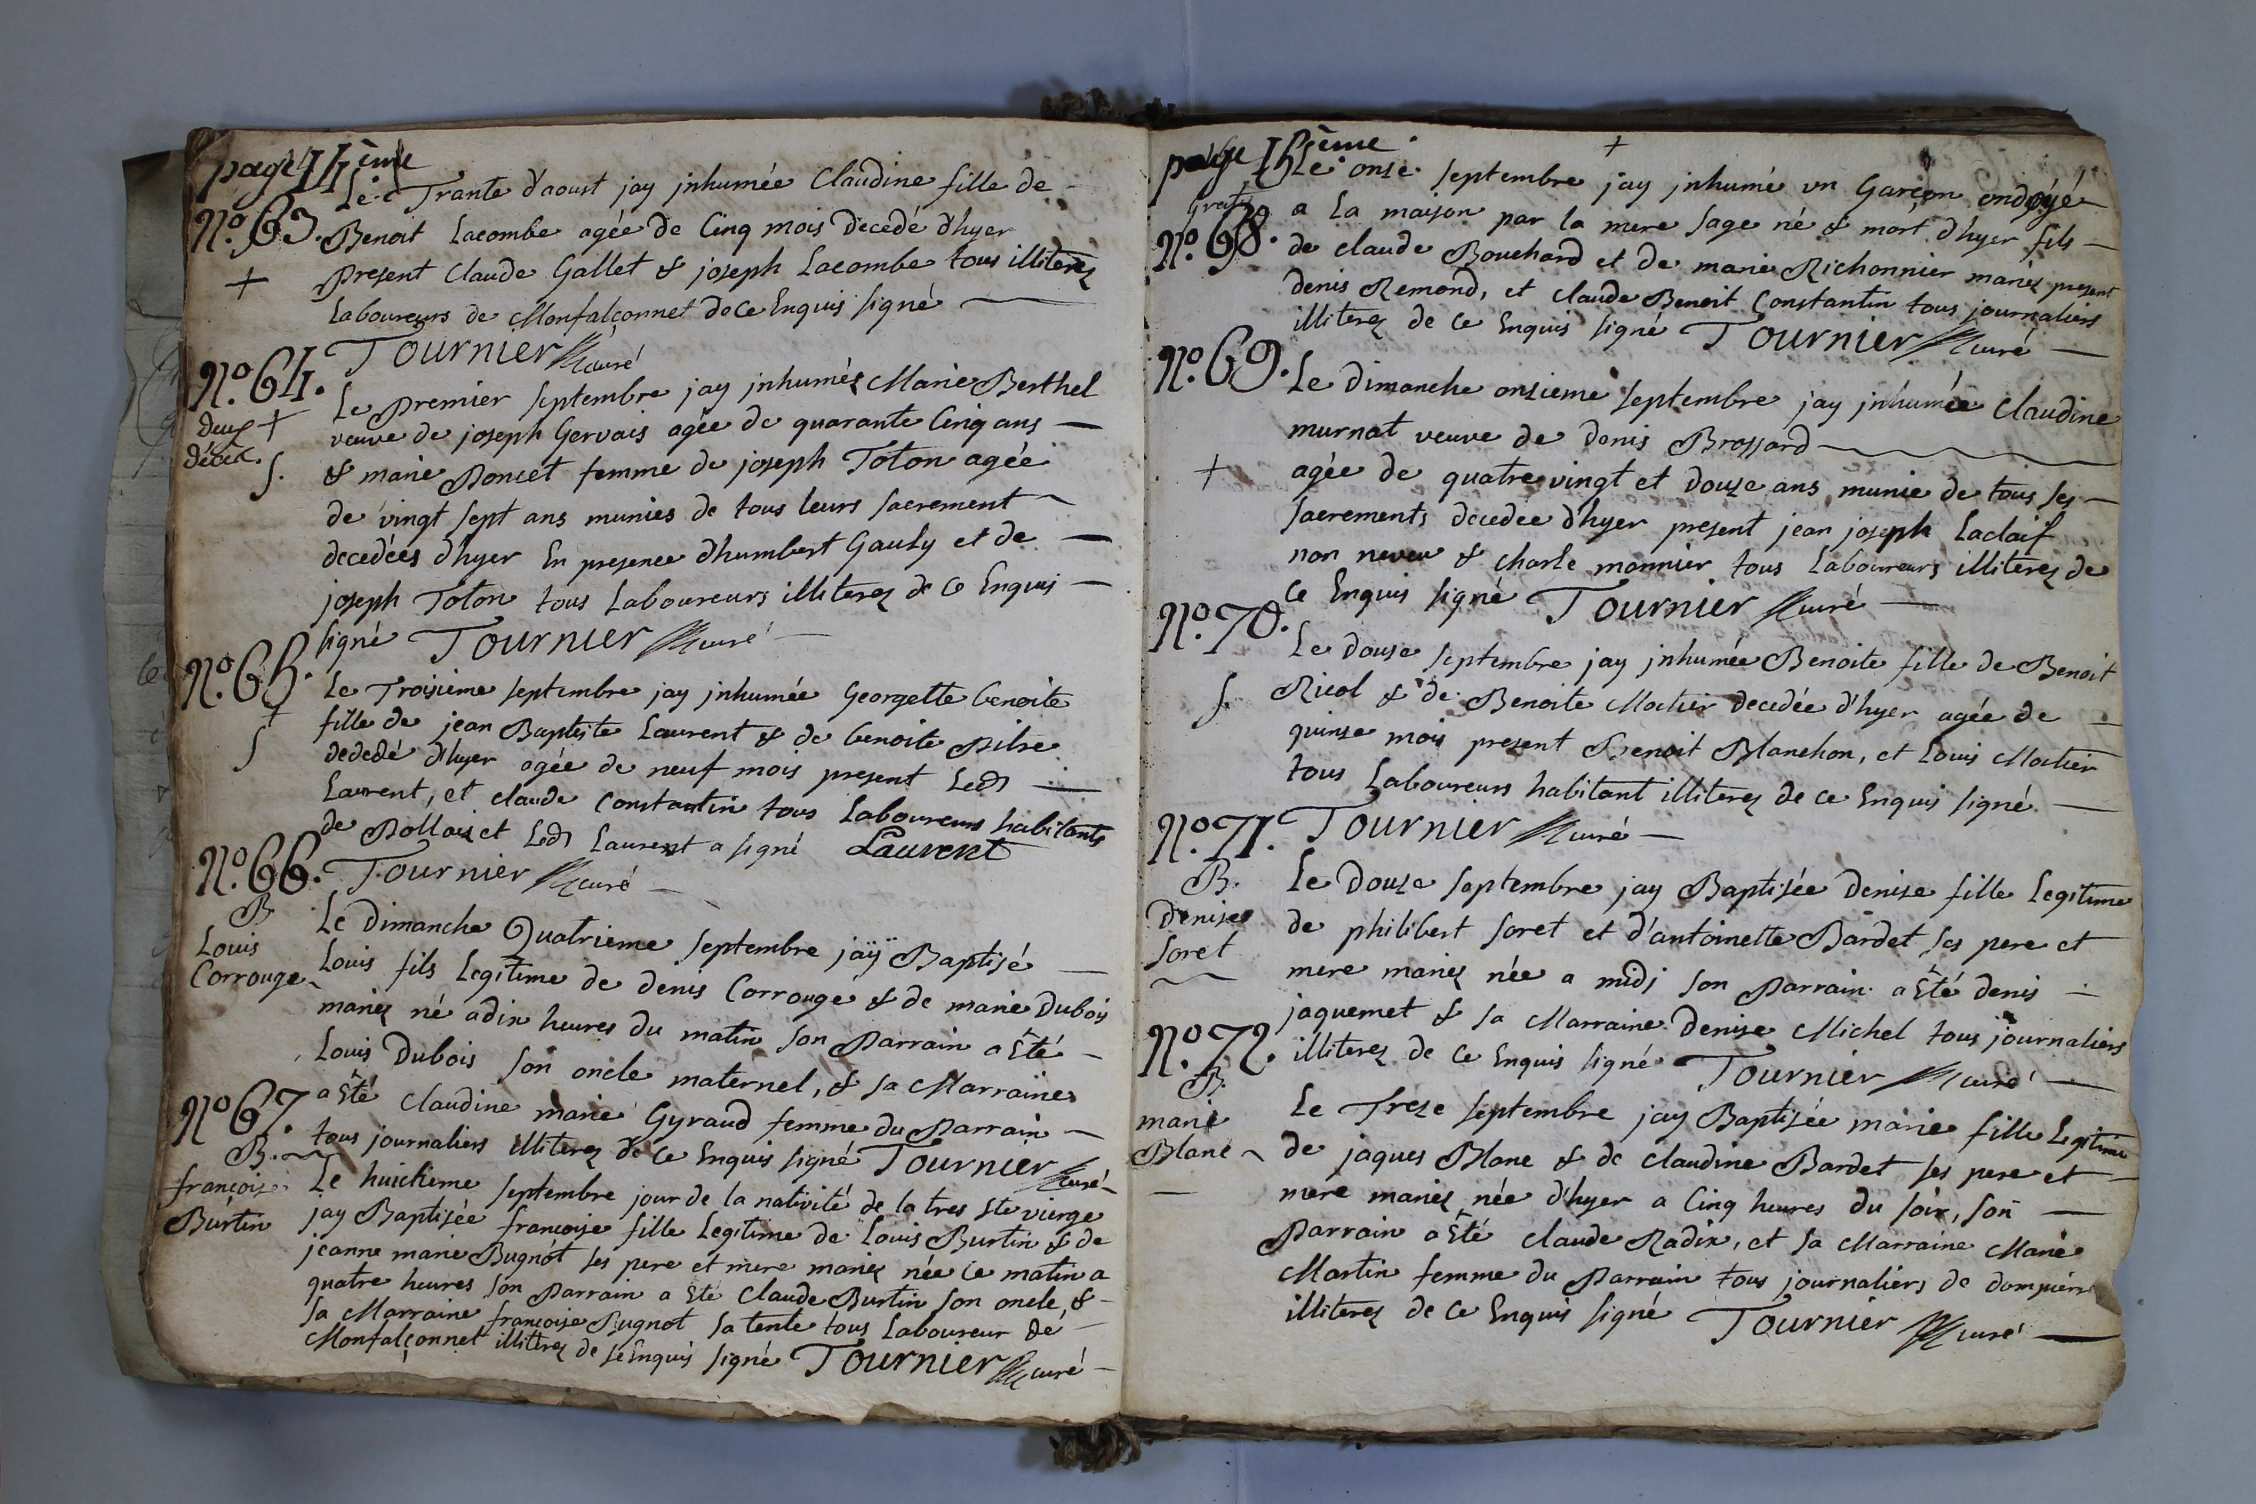 page 14ème
No. 63.
+
Le Trante d'aoust jay jnhumée Claudine fille de
Benoit Lacombe agée de Cinq mois decedé d'hyer
present Claude Gallet & joseph Lacombe tous illiterez
Laboureurs de Monfalçonnet de Ce Enquis signé
Tournier curé
No. 64.
deux +
décex.
S.
Le Premier septembre jay jnhumés Marie Berthel
veuve de joseph Gervais agée de quarante Cinq ans
& marie Poncet femme de joseph Toton agée
de vingt sept ans munies de tous leurs sacrement
decedées d'hyer En presence d'humbert Gauly et de
joseph Toton tous Laboureurs illiterez de Ce Enquis
signé Tournier curé
No. 65.
+
S
Le Troisieme septembre jay jnhumée Georgette benoite
fille de jean Baptiste Laurent & de benoite Pilre
dedédé d'hyer agée de neuf mois present Led
Laurent, et claude Constantin tous Laboureurs habitants
de Pollaiz et Led Laurent a signé Laurent
Tournier curé
No. 66.
B.
Louis
Corrouge
Le Dimanche Quatrieme septembre jaÿ Baptisé
Louis fils Legitime de denis Corrougé & de marie Dubois
mariez né a dix heures du matin son Parrain a Eté
Louis Dubois son oncle maternel, & sa Marraine
a Eté Claudine marie Gyraud femme du Parrain
tous journaliers illiterez de Ce Enquis signé Tournier curé
No. 67.
B.
françoise
Burtin
Le huictieme septembre jour de la nativité de la tres Ste vierge
jay Baptisée françoise fille Legitime de Louis Burtin & de
jeanne marie Bugnot ses pere et mere mariez née Ce matin a
quatre heures son Parrain a Eté Claude Burtin son oncle, &
sa Marraine françoise Bugnot sa tente tous Laboureur de
Monfalçonnet illiterez de Se Enquis signé Tournier curé
page 15ème
+
gratis
No. 68.
Le onse septembre jay jnhumé un Garçon ondoyé
a La maison par la mere sage né & mort d'hyer fils
de claude Bouchard et de marie Richonnier mariez present
denis Remond, et Claude Benoit Constantin tous journaliers
illiterez de Ce Enquis signé Tournier curé
No. 69.
+
Le Dimanche onsieme septembre jay jnhumée Claudine
murnat veuve de denis Brossard
agée de quatre vingt et douze ans munie de tous ses
sacrements decedee d'hyer present jean joseph Laclaif
non neveu & charle monnier tous Laboureurs illiterez de
Ce Enquis signé Tournier curé
No. 70.
S.
Le douse septembre jay jnhumée Benoite fille de Benoit
Ricol & de Benoite Mortier decedée d'hyer agée de
quinse mois present Benoit Blanchon, et Louis Mortier
tous Laboureurs habitant illiterez de Ce Enquis signé
Tournier curé
No. 71.
B.
denise
Soret
Le Douze septembre jay Baptisée denise fille Legitime
de philibert Soret et d'antoinette Bardet ses pere et
mere mariez née a midi son Parrain a Eté denis
jaquemet & sa Marraine Denise Michel tous journaliers
illiterez de Ce Enquis signé Tournier curé
No. 72.
B.
marie
Blanc
Le Treze septembre jay Baptisée marie fille Legitime
de jaques Blanc & de claudine Bardet ses pere et
mere mariez née d'hyer a Cinq heures du soir, son
Parrain a Eté claude Radix, et sa Marraine Marie
Martin femme du Parrain tous journaliers de dompierre
illiterez de Ce Enquis signé Tournier curé